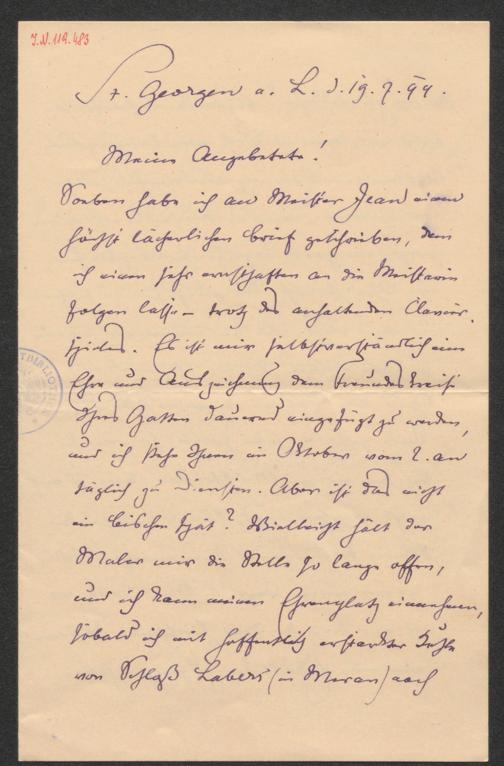 I.N. 119.483
St. Georgen a. L. d. 19. 7. 94.
Meine Angebetete!
Soeben habe ich an Meister Jean einen
höchst lächerlichen Brief geschrieben, dem
ich einen sehr ernsthaften an die Meisterin
folgen lasse – trotz des anhaltenden Clavier-
spieles. Es ist mir selbstverständlich eine
Ehre und Auszeichnung dem Freundeskreise
Ihres Gatten dauernd eingefügt zu werden,
und ich stehe Ihnen im Oktober vom 2. an
täglich zu Diensten. Aber ist das nicht
ein bischen spät? Vielleicht hält der
Maler mir die Stelle so lange offen,
und ich kann meinen Ehrenplatz einnehmen,
sobald ich mit hoffentlich erstarkter
von Schloß Labers (in Meran) nach